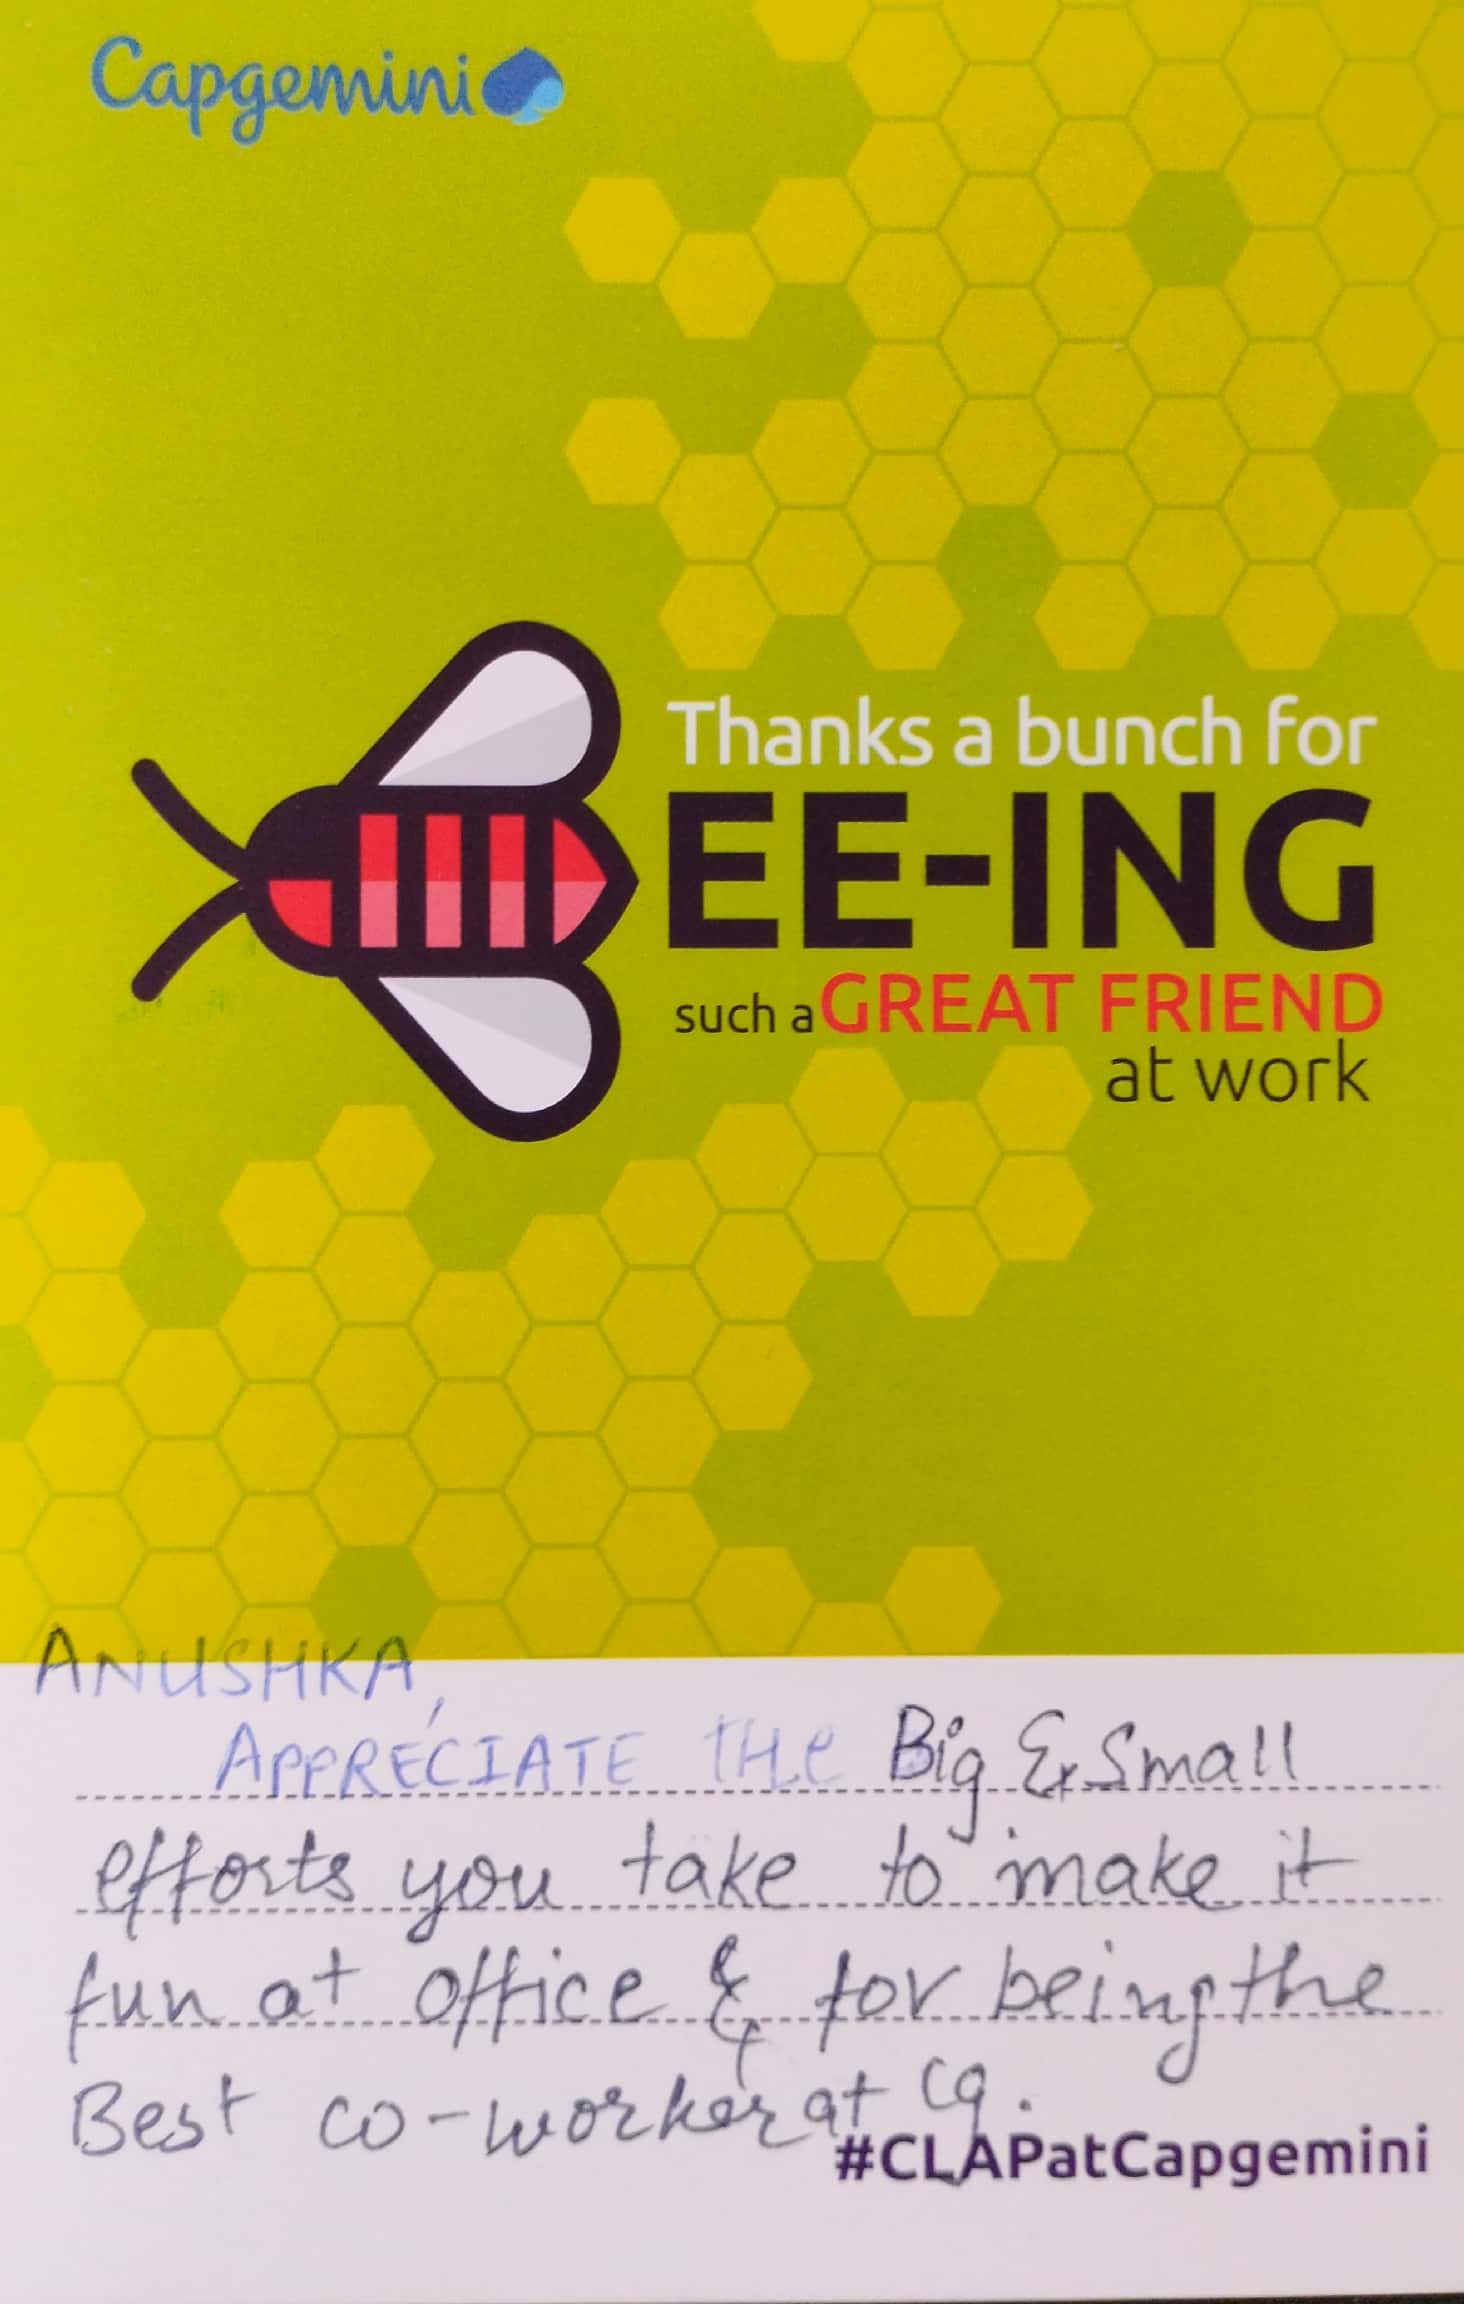 Capgemini
Thanks a bunch for
EE-ING
such a GREAT FRIEND
at work
ANUSHKA,
APPRECIATE THe Big & Small
efforts you take to make it
fun at office & for being the
Best co-worker at cg.
#CLAPatCapgemini